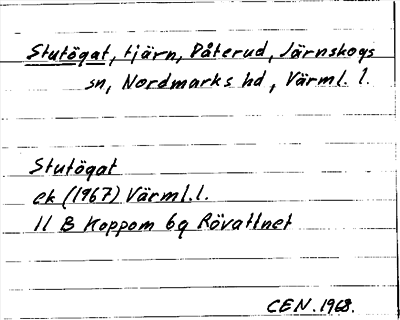 Stutögat, tjärn, Påterud, Järnskogs
sn, Nordmarks hd, Värml. l.
Stutögat
ek (1967) Värml.l.
11 B Koppom 6g Rövattnet
CEN. 1968.